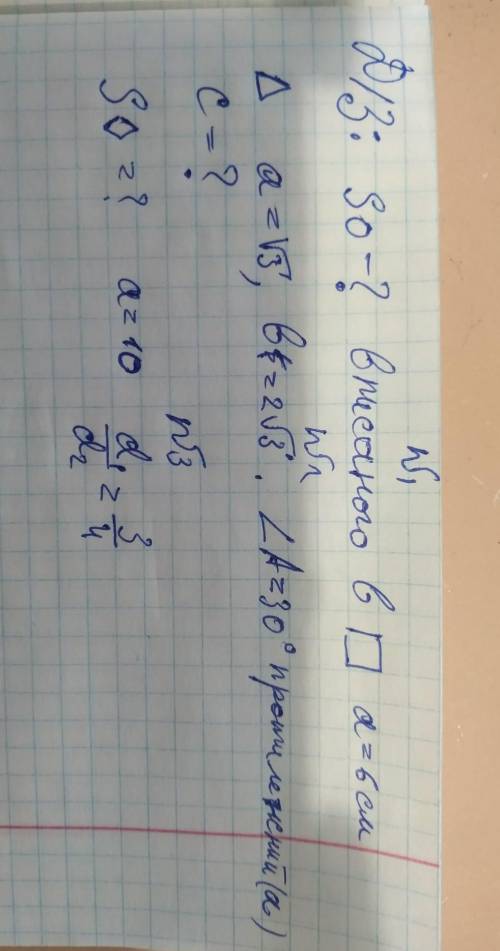 №1
Д/З: So - ? вписаного в □ a = 6 см
№2
△ a = √3, в = 2√3. ∠A = 30° протилежний (a)
c = ?
№3
S◇ = ? a = 10 d₁/d₂ = 3/4